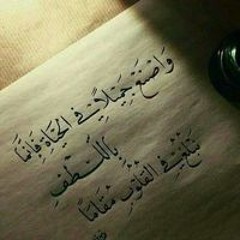 وَاصْنَعْ جَمِيْلًا فِي الْحَيَاةِ فَإِنَّمَا
بِاللُّطْفِ
تَبْلُغُ فِي الْقُلُوْبِ مَقَامَا